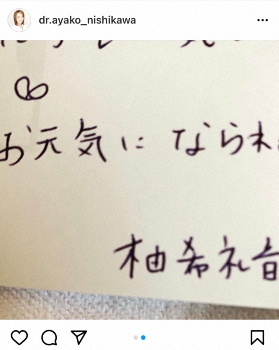 dr.ayako_nishikawa
お元気になられ
柚希礼音